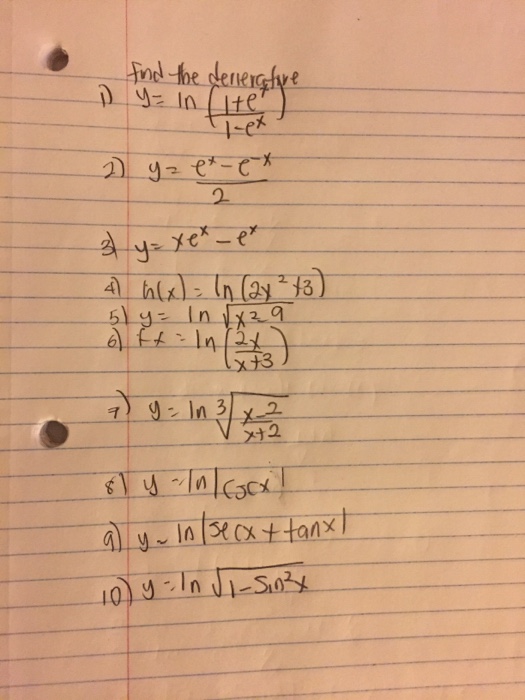 Find the dererative
1) y = ln (1+e^x / 1-e^x)
2) y = e^x - e^-x / 2
3) y = xe^x - e^x
4) h(x) = ln (2x^2+3)
5) y = ln √x^2-9
6) fx = ln (2x / x+3)
7) y = ln 3√x-2 / x+2
8) y = ln |cscx|
9) y = ln |secx + tanx|
10) y = ln √1-Sin^2x